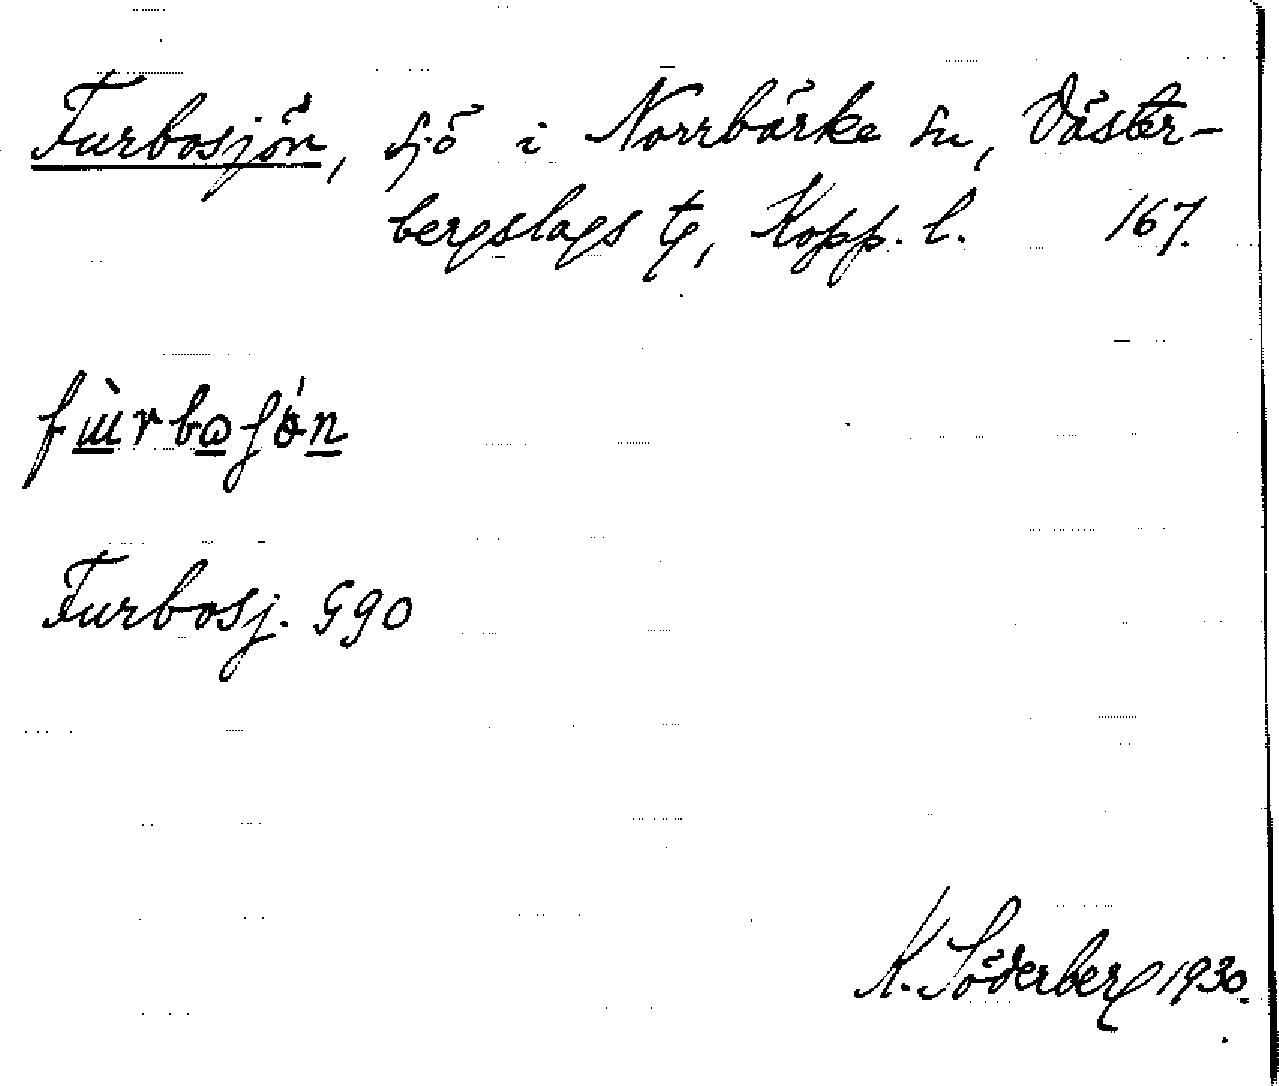 Furbosjön, sjö i Norrbärke sn, Väster-
bergslags tg, Kopp. l. 167.
Furbosj. G90
K. Söderberg 1930.